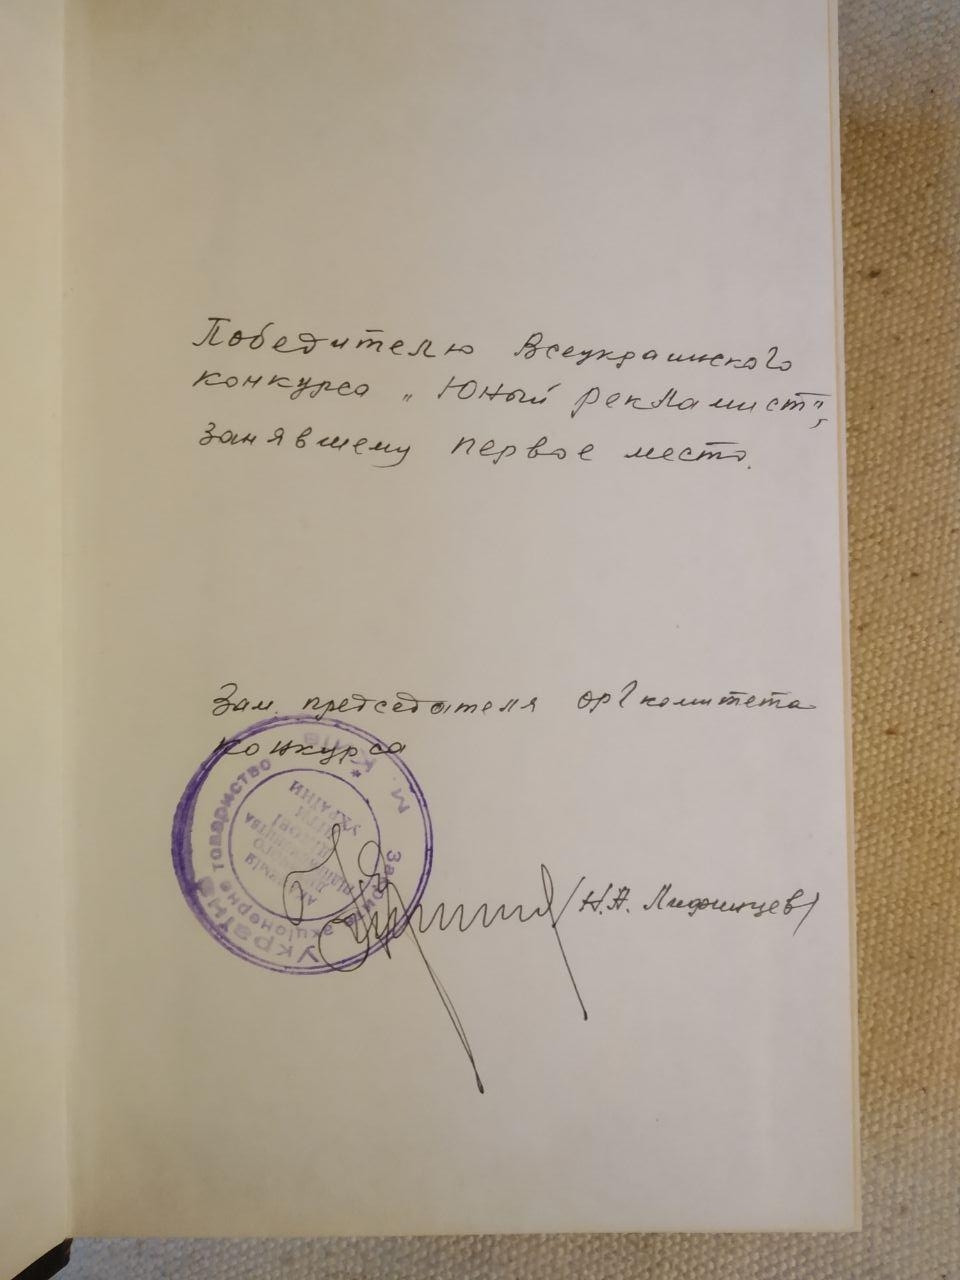 Победителю Всеукраинского
конкурса „Юный рекламист",
занявшему первое место.
Зам. председателя оргкомитета
конкурса
(Н.А. Лифинцев)
Україна
м. Київ
Закрите акціонерне товариство
УКРАЇНИ